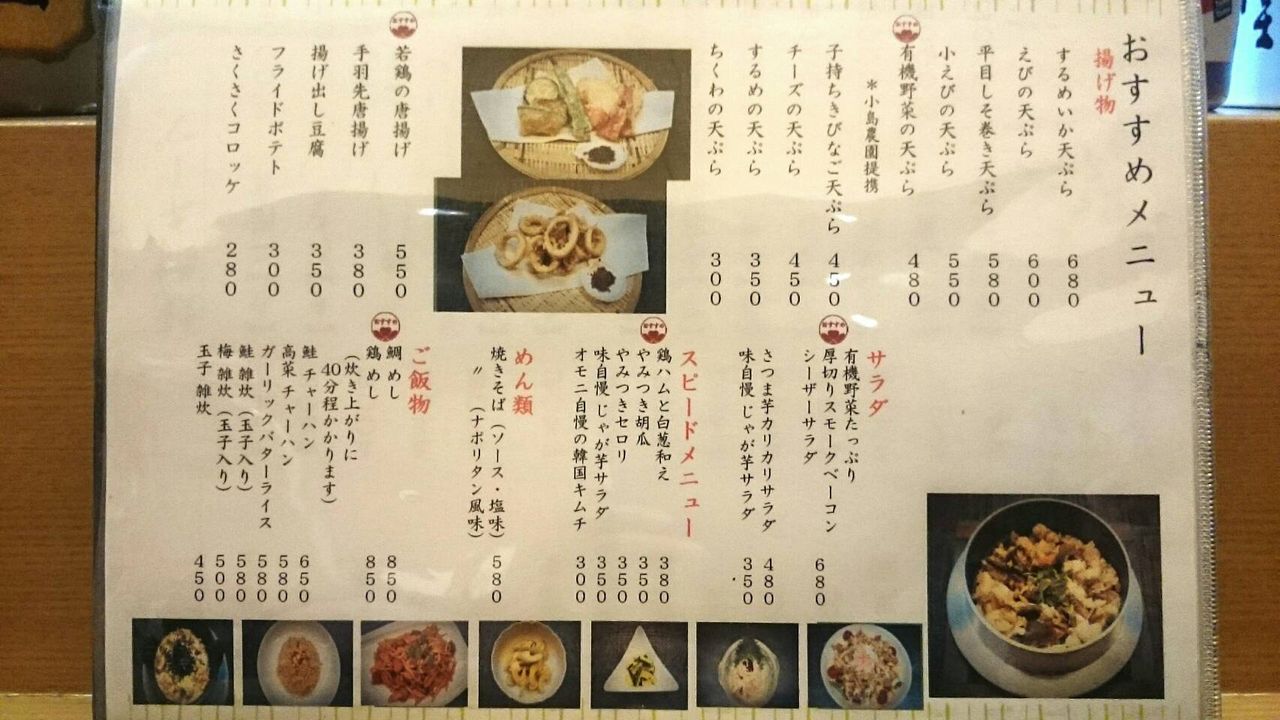 おすすめメニュー
揚げ物
するめいか天ぷら 680
えびの天ぷら 600
平目しそ巻き天ぷら 580
小えびの天ぷら 550
おすすめ
有機野菜の天ぷら 480
＊小島農園提携
子持ちきびなご天ぷら 450
チーズの天ぷら 450
するめの天ぷら 350
ちくわの天ぷら 300
おすすめ
若鶏の唐揚げ 550
手羽先唐揚げ 380
揚げ出し豆腐 350
フライドポテト 300
さくさくコロッケ 280
サラダ
おすすめ
有機野菜たっぷり
厚切りスモークベーコン
シーザーサラダ 680
さつま芋カリカリサラダ 480
味自慢じゃが芋サラダ 350
スピードメニュー
おすすめ
鶏ハムと白葱和え 380
やみつき胡瓜 350
やみつきセロリ 350
味自慢じゃが芋サラダ 350
オモニ自慢の韓国キムチ 300
めん類
焼きそば（ソース・塩味） 580
〃 （ナポリタン風味）
ご飯物
おすすめ
鯛めし 850
鶏めし 850
（炊き上がりに
40分程かかります）
鮭チャーハン 650
高菜チャーハン 580
ガーリックバターライス 580
鮭雑炊（玉子入り） 580
梅雑炊（玉子入り） 500
玉子雑炊 450